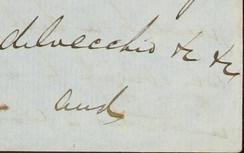 delvecchio &c &c
and